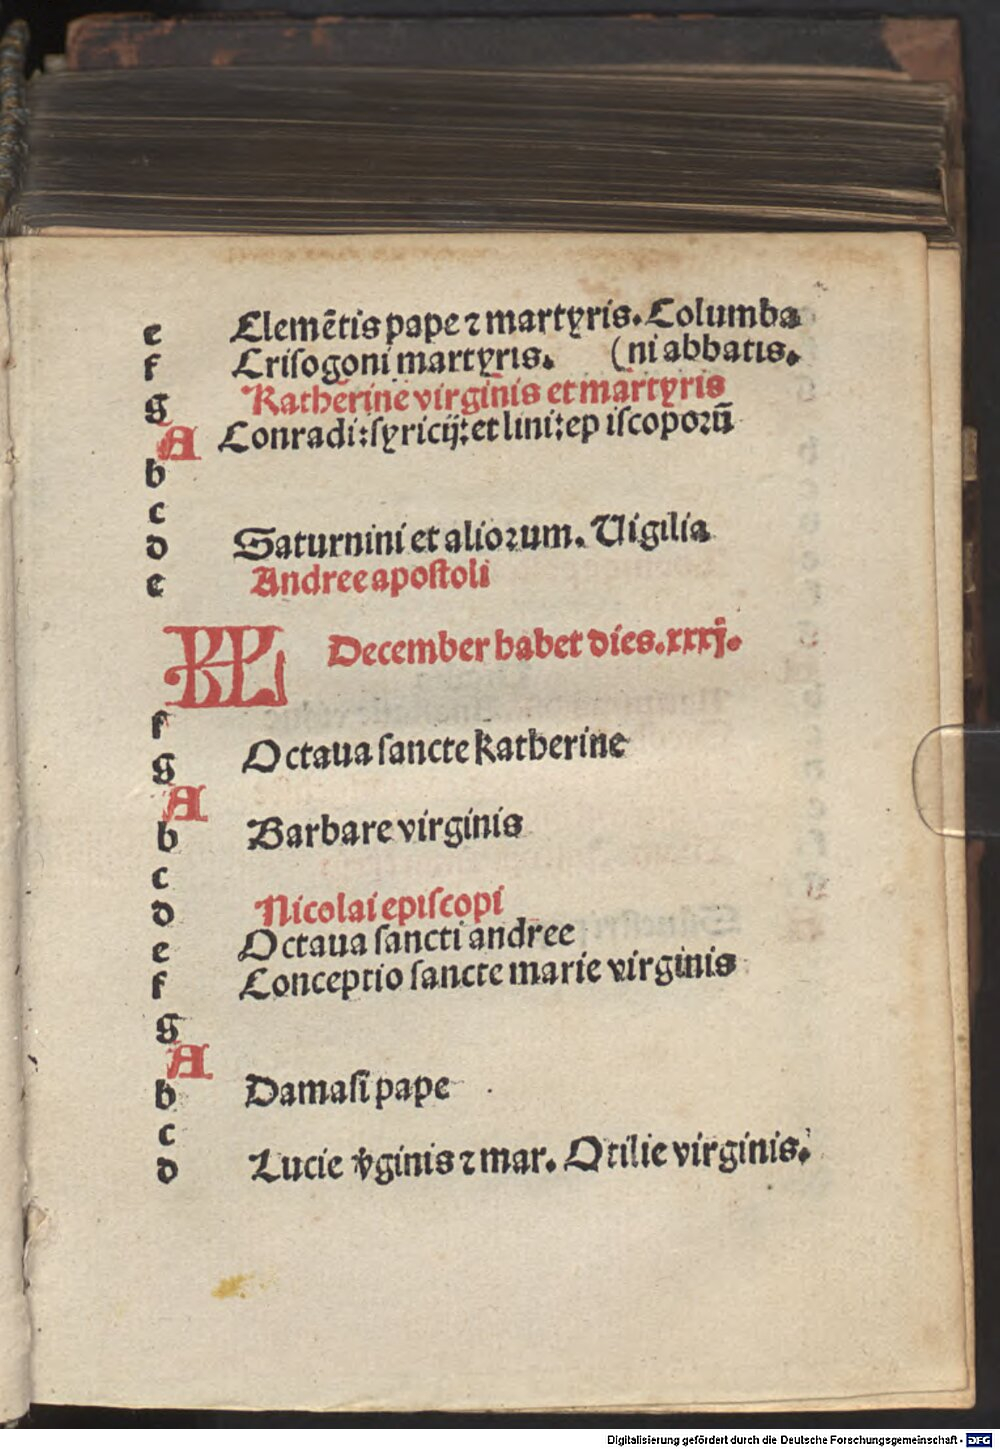 e Clemẽtis pape ⁊ martyris. Columba
f Crisogoni martyris. (ni abbatis.
g Katherine virginis et martyris
A Conradi: syricij: et lini: ep iscoporũ
b
c
d Saturnini et aliorum. Uigilia
e Andree apostoli
KL December habet dies. xxxj.
f
g Octaua sancte katherine
A
b Barbare virginis
c
d Nicolai episcopi
e Octaua sancti andree
f Conceptio sancte marie virginis
g
A
b Damasi pape
c
d Lucie v̓ginis ⁊ mar. Otilie virginis.
Digitalisierung gefördert durch die Deutsche Forschungsgemeinschaft - DFG